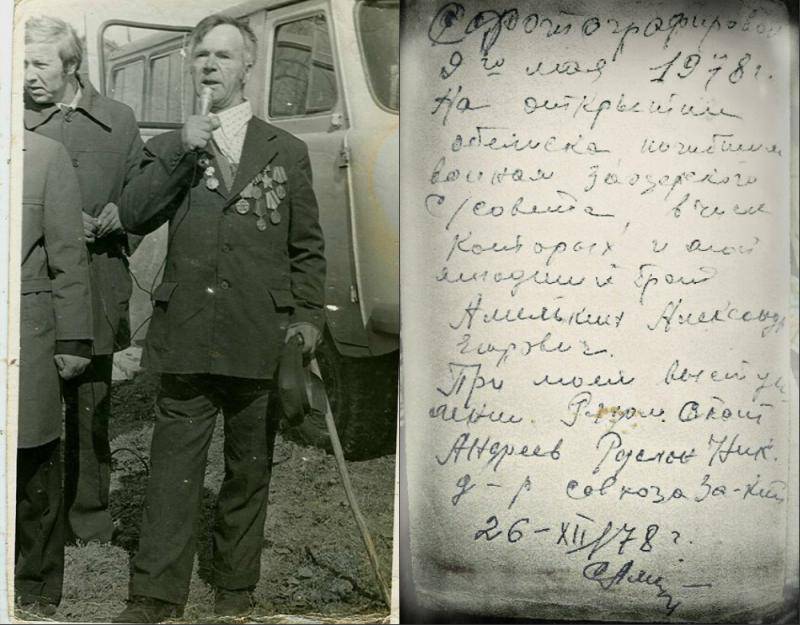 Сфотографирован
9го мая 1978 г.
На открытии
обелиска погибшим
воинам Заозерского
с/совета, в числе
которых и мой
младший брат
Амелькин Александр
Егорович.
При моем выступ
лении. Рядом стоит
Андреев Руслан Ник.
д-р совхоза За-кий
26-XII/78 г.